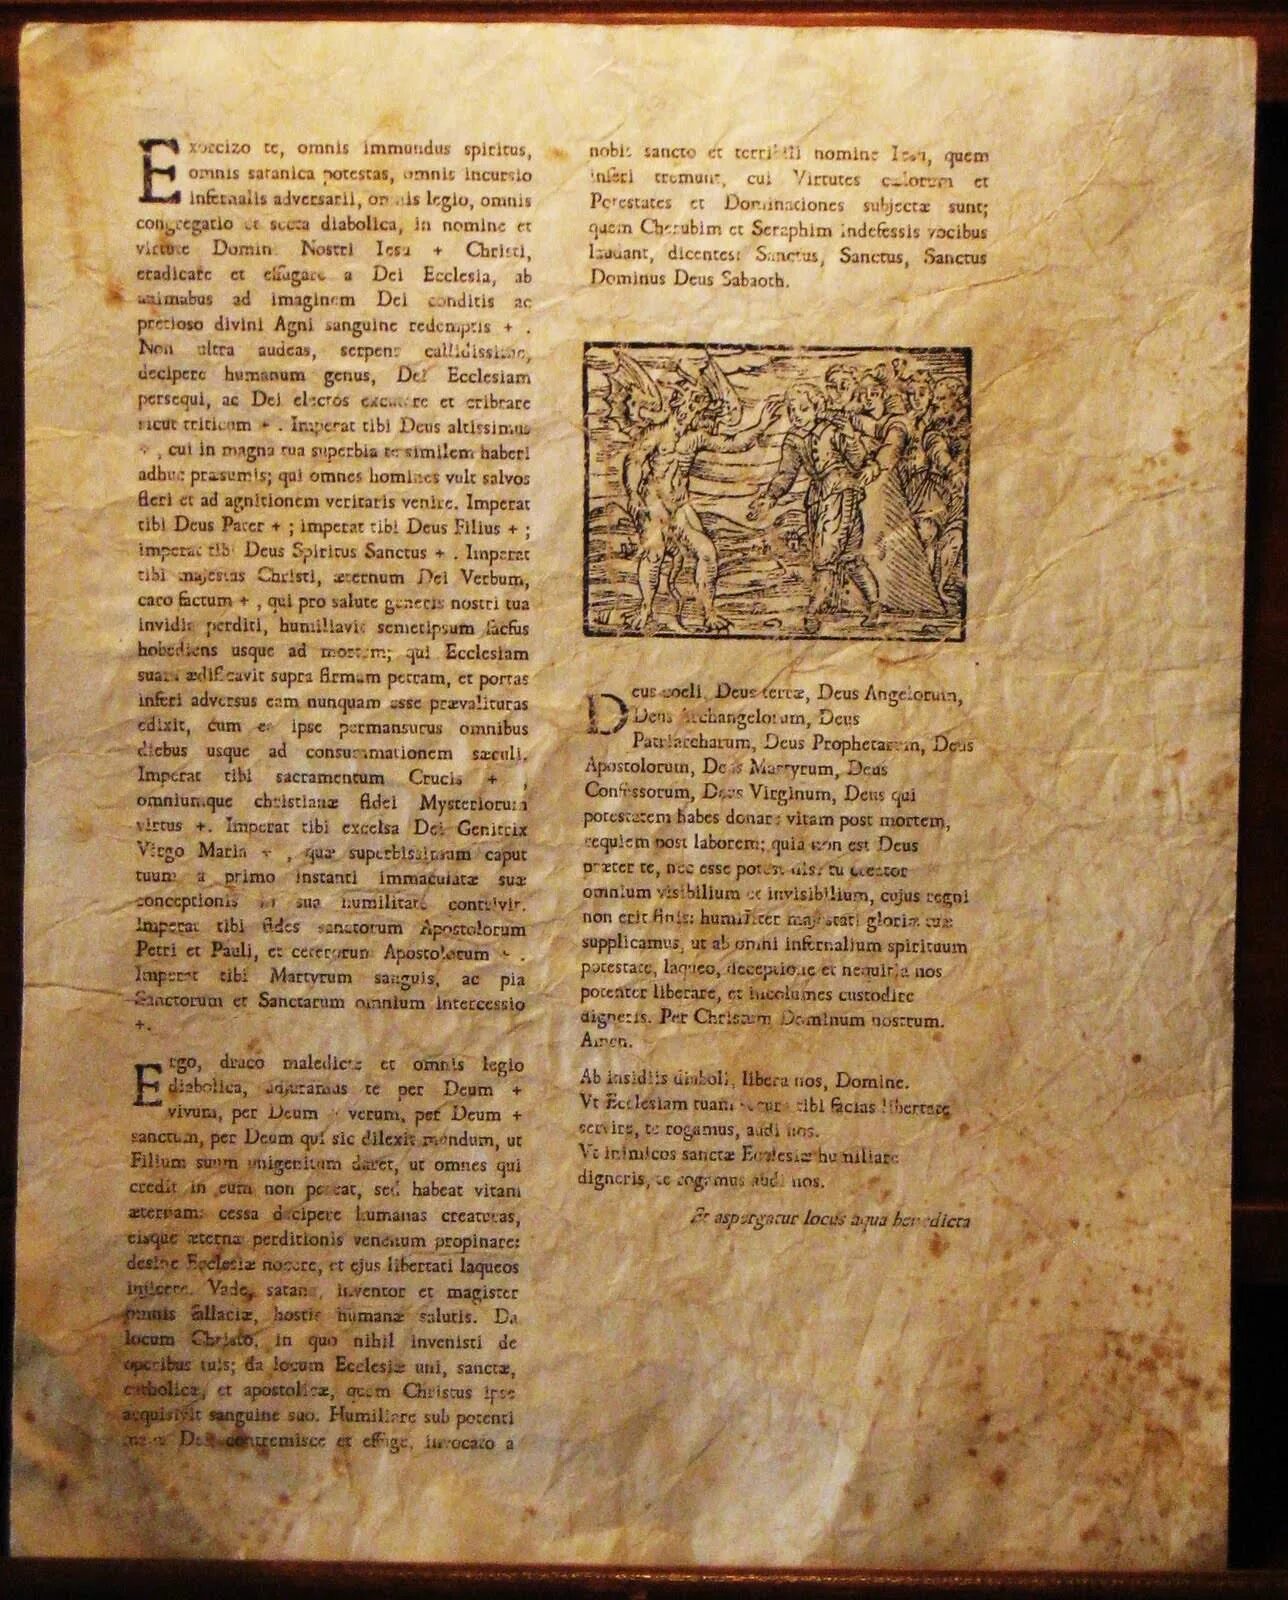 Exorcizo te, omnis immundus spiritus,
omnis satanica potestas, omnis incursio
infernalis adversarii, omnis legio, omnis
congregatio et secta diabolica, in nomine et
virtute Domini Nostri Iesu + Christi,
eradicare et effugare a Dei Ecclesia, ab
animabus ad imaginem Dei conditis ac
pretioso divini Agni sanguine redemptis + .
Non ultra audeas, serpens callidissime,
decipere humanum genus, Dei Ecclesiam
persequi, ac Dei electos excutere et cribrare
sicut triticum + . Imperat tibi Deus altissimus
+ , cui in magna tua superbia te similem haberi
adhuc præsumis; qui omnes homines vult salvos
fieri et ad agnitionem veritatis venire. Imperat
tibi Deus Pater + ; imperat tibi Deus Filius + ;
imperat tibi Deus Spiritus Sanctus + . Imperat
tibi majestas Christi, æternum Dei Verbum,
caro factum + , qui pro salute generis nostri tua
invidia perditi, humiliavit semetipsum facfus
hobediens usque ad mortem; qui Ecclesiam
suam ædificavit supra firmam petram, et portas
inferi adversus eam nunquam esse prævalituras
edixit, cum ea ipse permansurus omnibus
diebus usque ad consummationem sæculi.
Imperat tibi sacramentum Crucis + ,
omniumque christianæ fidei Mysteriorum
virtus +. Imperat tibi excelsa Dei Genitrix
Virgo Maria + , quæ superbissimum caput
tuum a primo instanti immaculatæ suæ
conceptionis in sua humilitate contrivit.
Imperat tibi fides sanctorum Apostolorum
Petri et Pauli, et ceterorum Apostolorum + .
Imperat tibi Martyrum sanguis, ac pia
Sanctorum et Sanctarum omnium intercessio
+.
Ergo, draco maledicte et omnis legio
diabolica, adjuramus te per Deum +
vivum, per Deum + verum, per Deum +
sanctum, per Deum qui sic dilexit mundum, ut
Filium suum unigenitum daret, ut omnes qui
credit in eum non pereat, sed habeat vitam
æternam: cessa decipere humanas creaturas,
eisque æternæ perditionis venenum propinare:
desine Ecclesiæ nocere, et ejus libertati laqueos
injicere. Vade, satana, inventor et magister
omnis fallaciæ, hostis humanæ salutis. Da
locum Christo, in quo nihil invenisti de
operibus tuis; da locum Ecclesiæ uni, sanctæ,
catholicæ, et apostolicæ, quam Christus ipse
acquisivit sanguine suo. Humiliare sub potenti
manu Dei contremisce et effuge, invocato a
nobis sancto et terribili nomine Iesu, quem
inferi tremunt, cui Virtutes cælorum et
Potestates et Dominaciones subjectæ sunt;
quem Cherubim et Seraphim indefessis vocibus
laudant, dicentes: Sanctus, Sanctus, Sanctus
Dominus Deus Sabaoth.
Deus coeli, Deus terræ, Deus Angelorum,
Deus Archangelorum, Deus
Patriarcharum, Deus Prophetarum, Deus
Apostolorum, Deus Martyrum, Deus
Confessorum, Deus Virginum, Deus qui
potestatem habes donare vitam post mortem,
requiem post laborem; quia non est Deus
præter te, nec esse potest nisi tu creator
omnium visibilium et invisibilium, cujus regni
non erit finis: humiliter majestati gloriæ tuæ
supplicamus, ut ab omni infernalium spirituum
potestate, laqueo, deceptione et nequitia nos
potenter liberare, et incolumes custodire
digneris. Per Christum Dominum nostrum.
Amen.
Ab insidiis diaboli, libera nos, Domine.
Vt Ecclesiam tuam secura tibi facias libertate
servire, te rogamus, audi nos.
Vt inimicos sanctæ Ecclesiæ humiliare
digneris, te rogamus audi nos.
Et aspergatur locus aqua benedicta